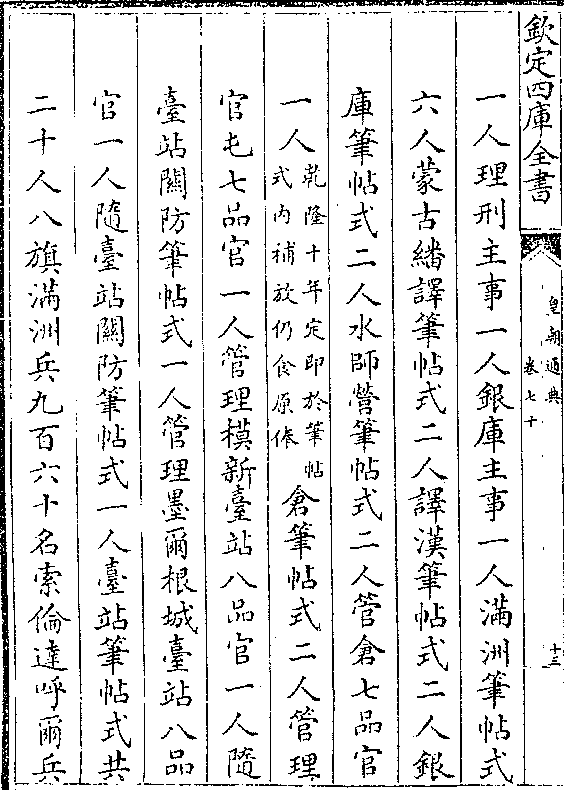 欽定四庫全書
皇朝通典
卷七十
十三
一人理刑主事一人銀庫主事一人滿洲筆帖式
六人蒙古繙譯筆帖式二人譯漢筆帖式二人銀
庫筆帖式二人水師營筆帖式二人管倉七品官
一人乾隆十年定即於筆帖
式内補放仍食原俸倉筆帖式二人管理
官屯七品官一人管理模新臺站八品官一人隨
臺站關防筆帖式一人管理墨爾根城臺站八品
官一人隨臺站關防筆帖式一人臺站筆帖式共
二十人八旗滿洲兵九百六十名索倫達呼爾兵